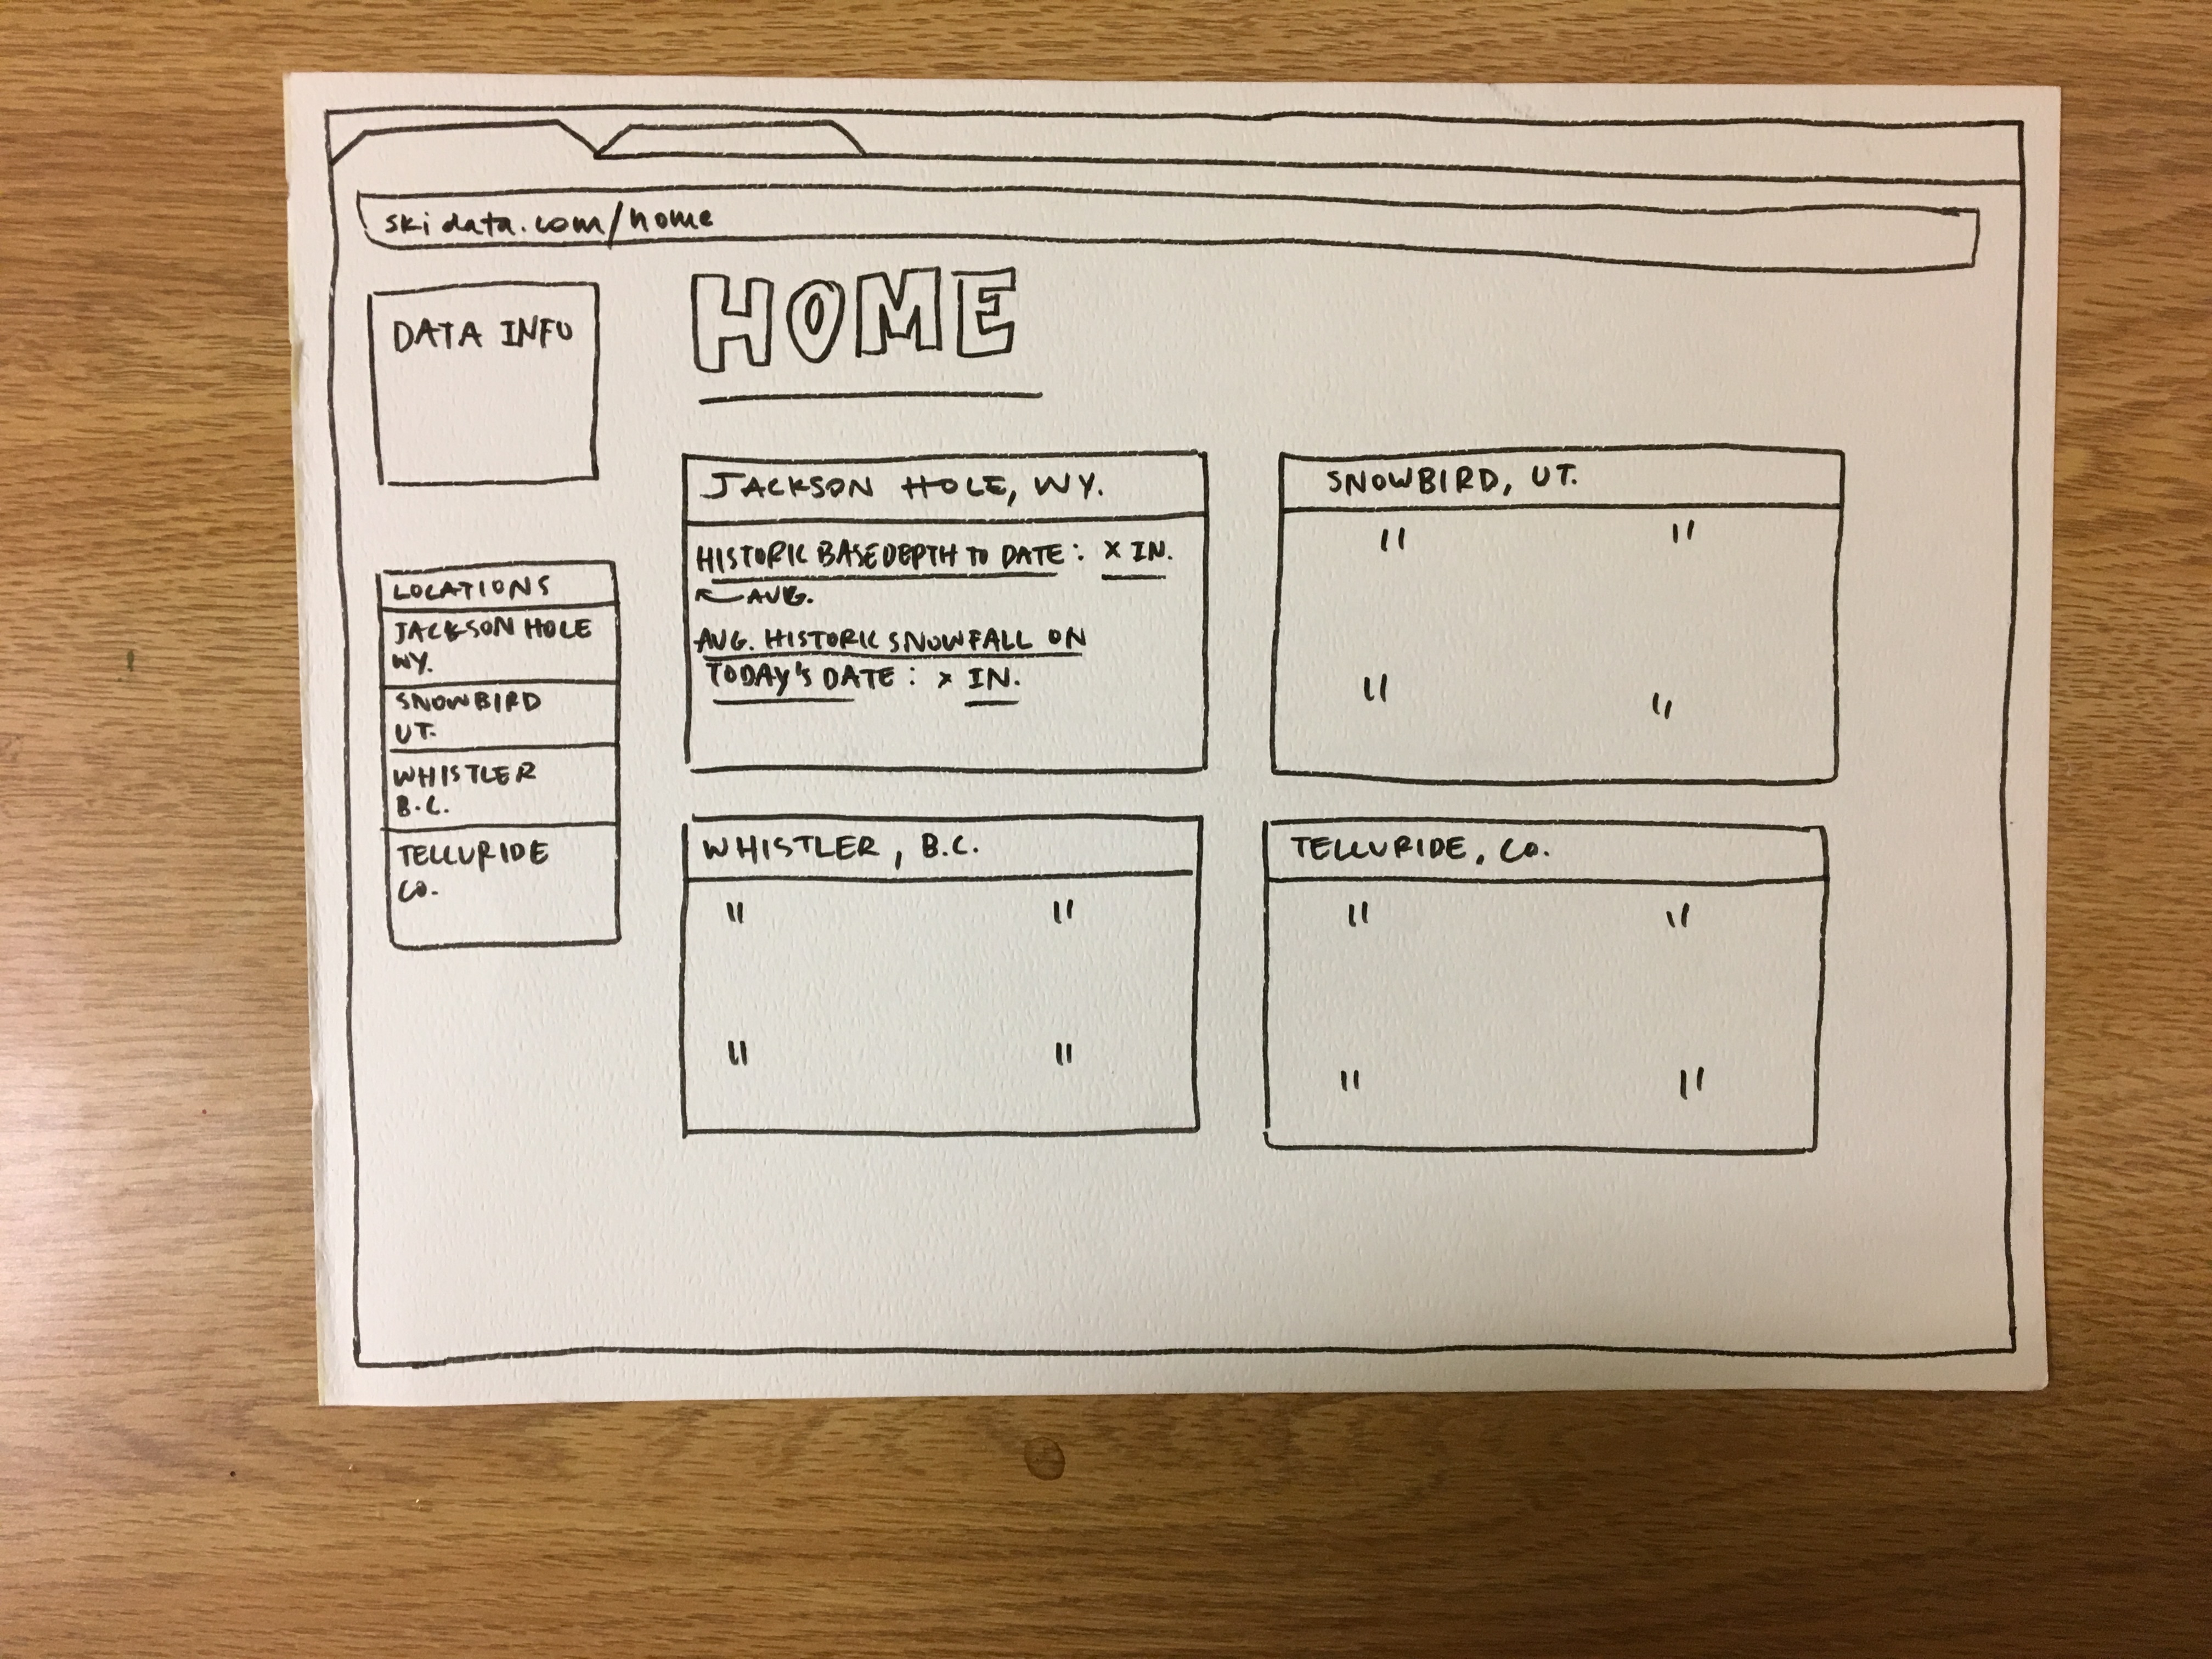 skidata.com/home
DATA INFO
HOME
LOCATIONS
JACKSON HOLE
WY.
SNOWBIRD
UT.
WHISTLER
B.C.
TELLURIDE
CO.
JACKSON HOLE, WY.
HISTORIC BASE DEPTH TO DATE: X IN.
AVG.
AVG. HISTORIC SNOWFALL ON
TODAY'S DATE: X IN.
SNOWBIRD, UT.
" "
" "
WHISTLER, B.C.
" "
" "
TELLURIDE, CO.
" "
" "